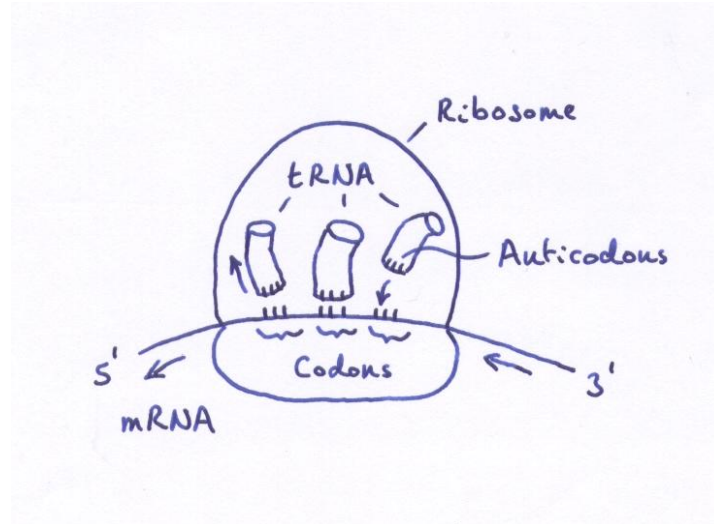 Ribosome
tRNA
Anticodons
Codons
5'
3'
mRNA